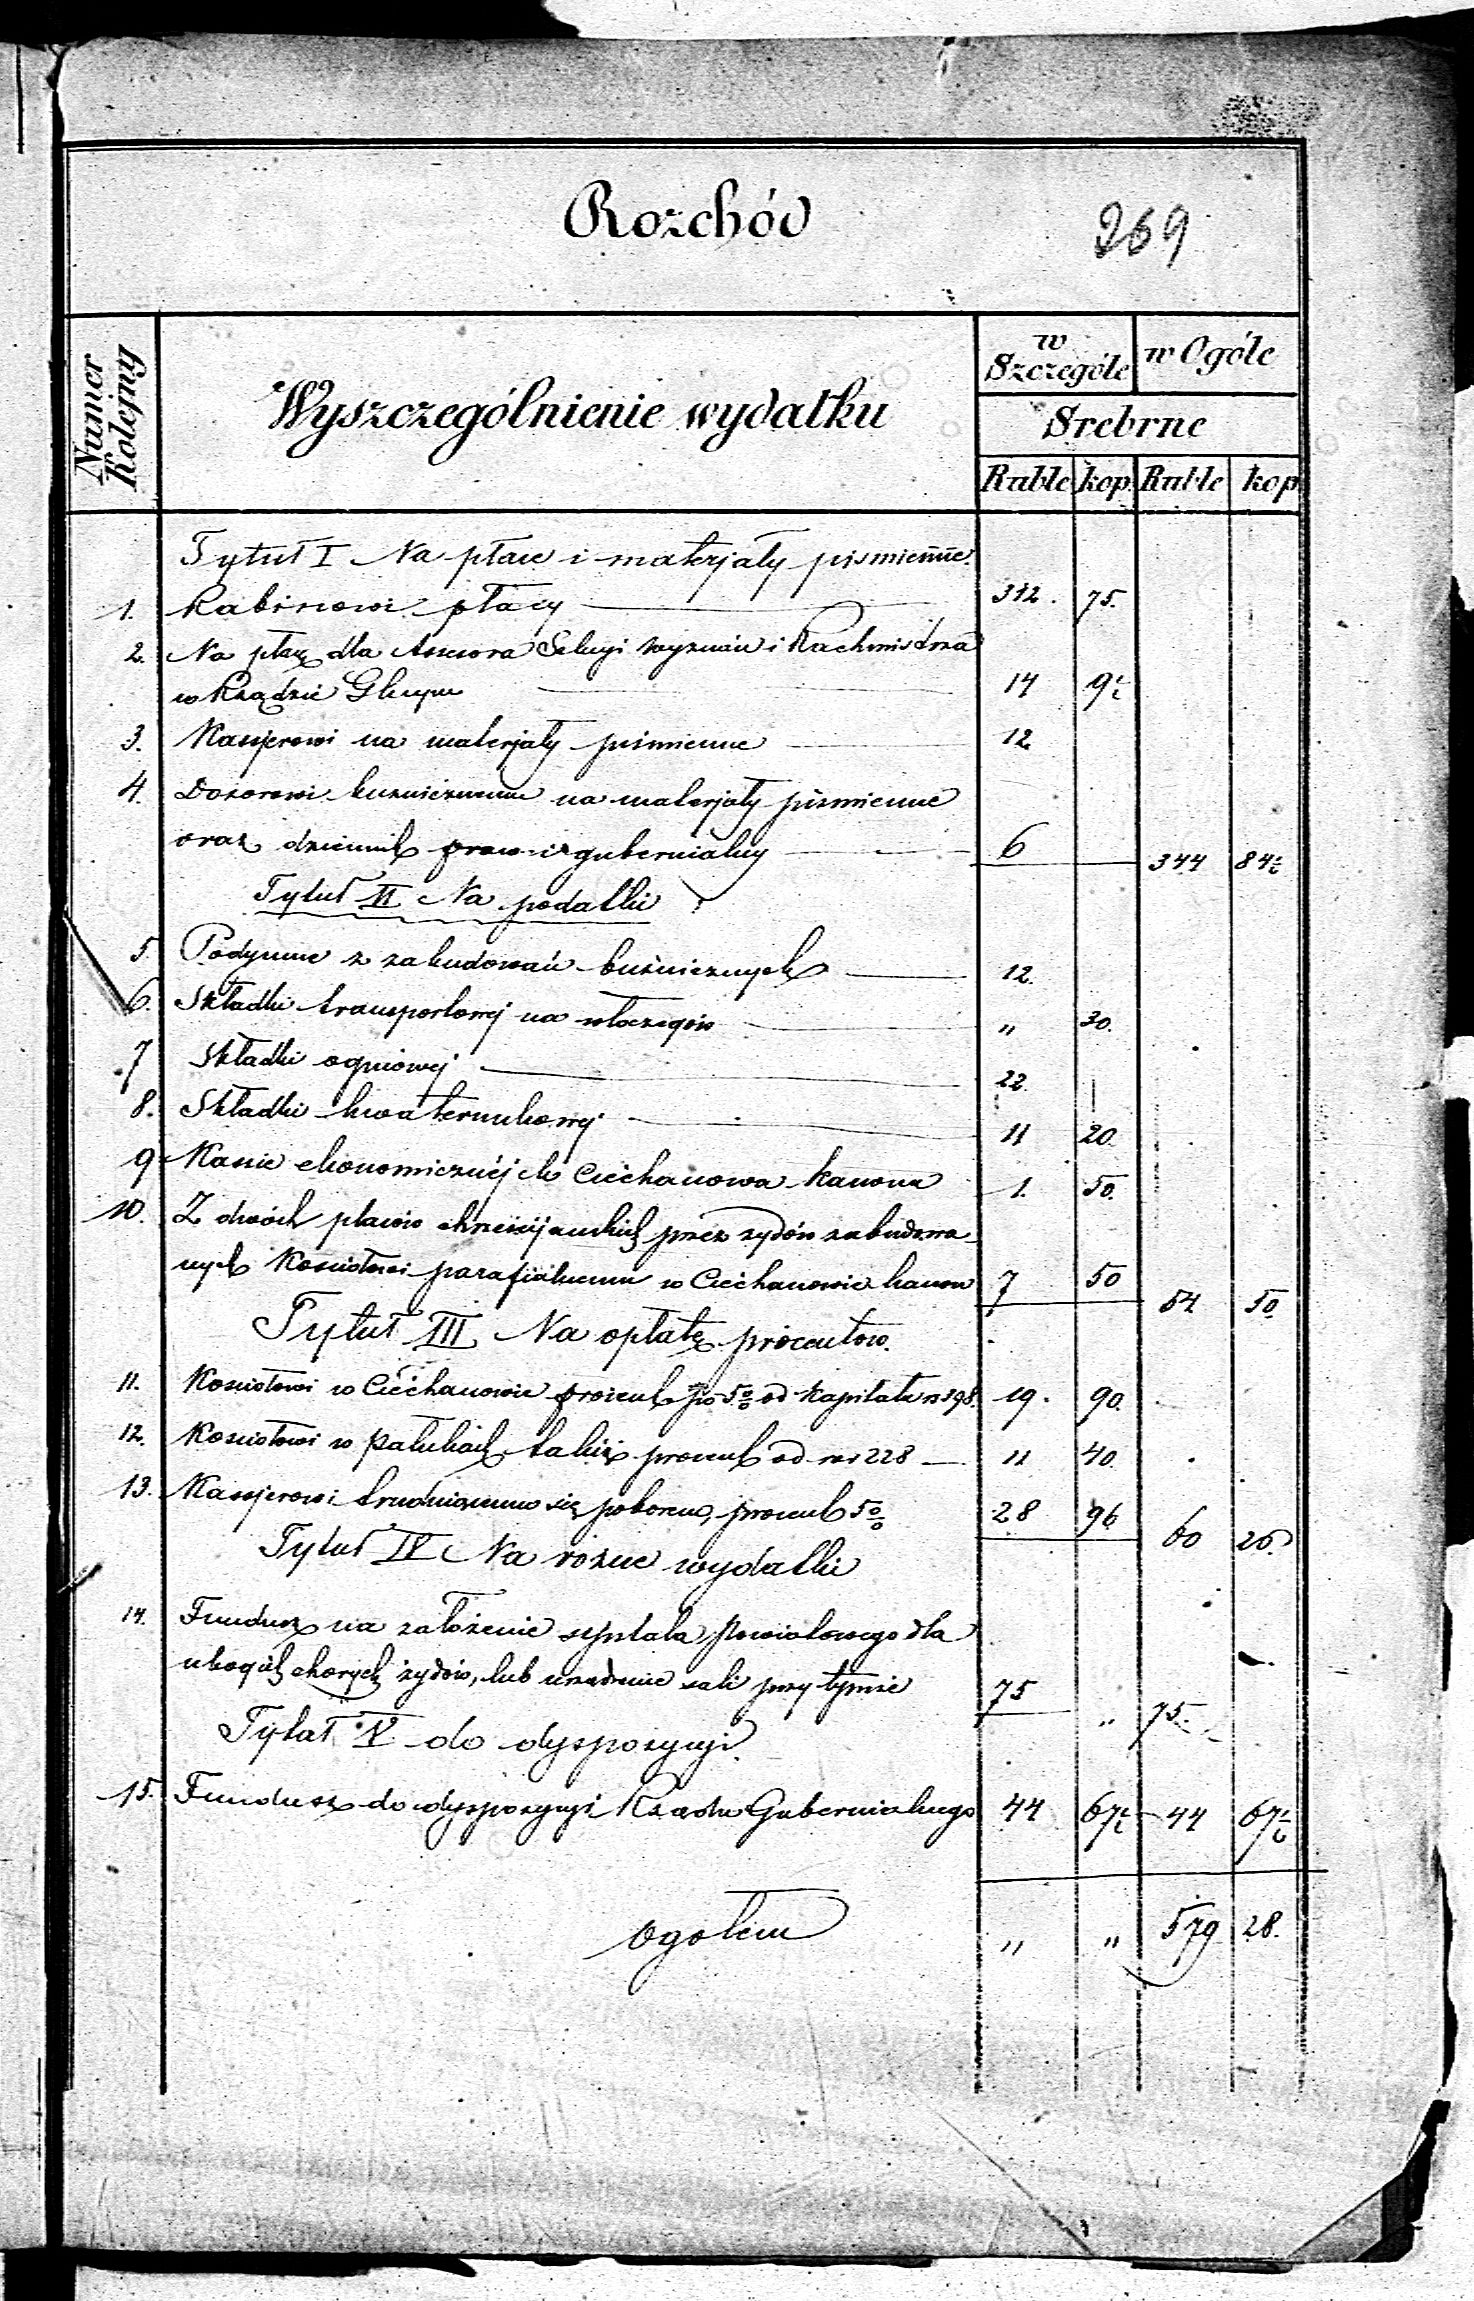 Rozchód
269
Numer Kolejny
Wyszczególnienie wydatku
w Szczególe
w Ogóle
Srebrne
Ruble kop. Ruble kop
Tytuł I Na płace i materjały pismienne.
1. Rabinowi płacy 312. 75.
2. Na płacę dla Assesora Sekcyi wyznań i Rachmistrza
w Rządzie Głnym 14 9½
3. Kassjerowi na materjały pismienne 12
4. Dozorowi bużnicznemu na materjały pismienne
oraz dziennik gubernialny 6 344 84½
Tytuł II Na podatki
5 Podymne z zabudowań bużnicznych 12.
6. Składki transportowej na włoczęgów " 30.
7 Składki ogniowej 22.
8. Składki kwaterunkowej 11 20.
9 Kassie ekonomicznéj Ciéchanowa kanonu 1. 50.
10. Z dwóch placów chrześcijauskich przez żydów zabudowa-
nych Kosciołowi parafialnemu w Ciéchanowie kanon 7 50 54 50
Tytuł III Na opłatę procentow.
11. Kosciołowi w Ciéchanowie procent po 5% od Kapitału rs 398. 19. 90.
12. Kosciołowi w Pałukach takiż procent od rs 228 11 40
13. Kassjerowi trudniącemu się poborem, procent 5% 28 96 60 26.
Tytuł IV Na rożne wydatki
14. Fundusz na założenie szpitala Powiatowego dla
ubogich chorych żydów, lub urządzenie sali przy tymże 75 " 75.
Tytuł V do dyspozycyi.
15. Fundusz do dyspozycyi Rządu Gubernialnego 44 67½ 44 67½
Ogołem " " 579 28.